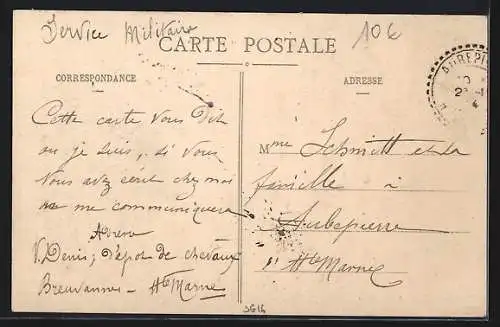 Service Militaire
10€
CARTE POSTALE
CORRESPONDANCE
ADRESSE
AUBEPI
Cette carte vous dit
ou je suis, si vous
vous avez écrit chez moi
me communiquera
Adresse
V. Denis, Dépot de chevaux
Breuvannes - Hte Marne
Mme Schmitt et la
famille à
Aubepierre
Hte Marne
3616